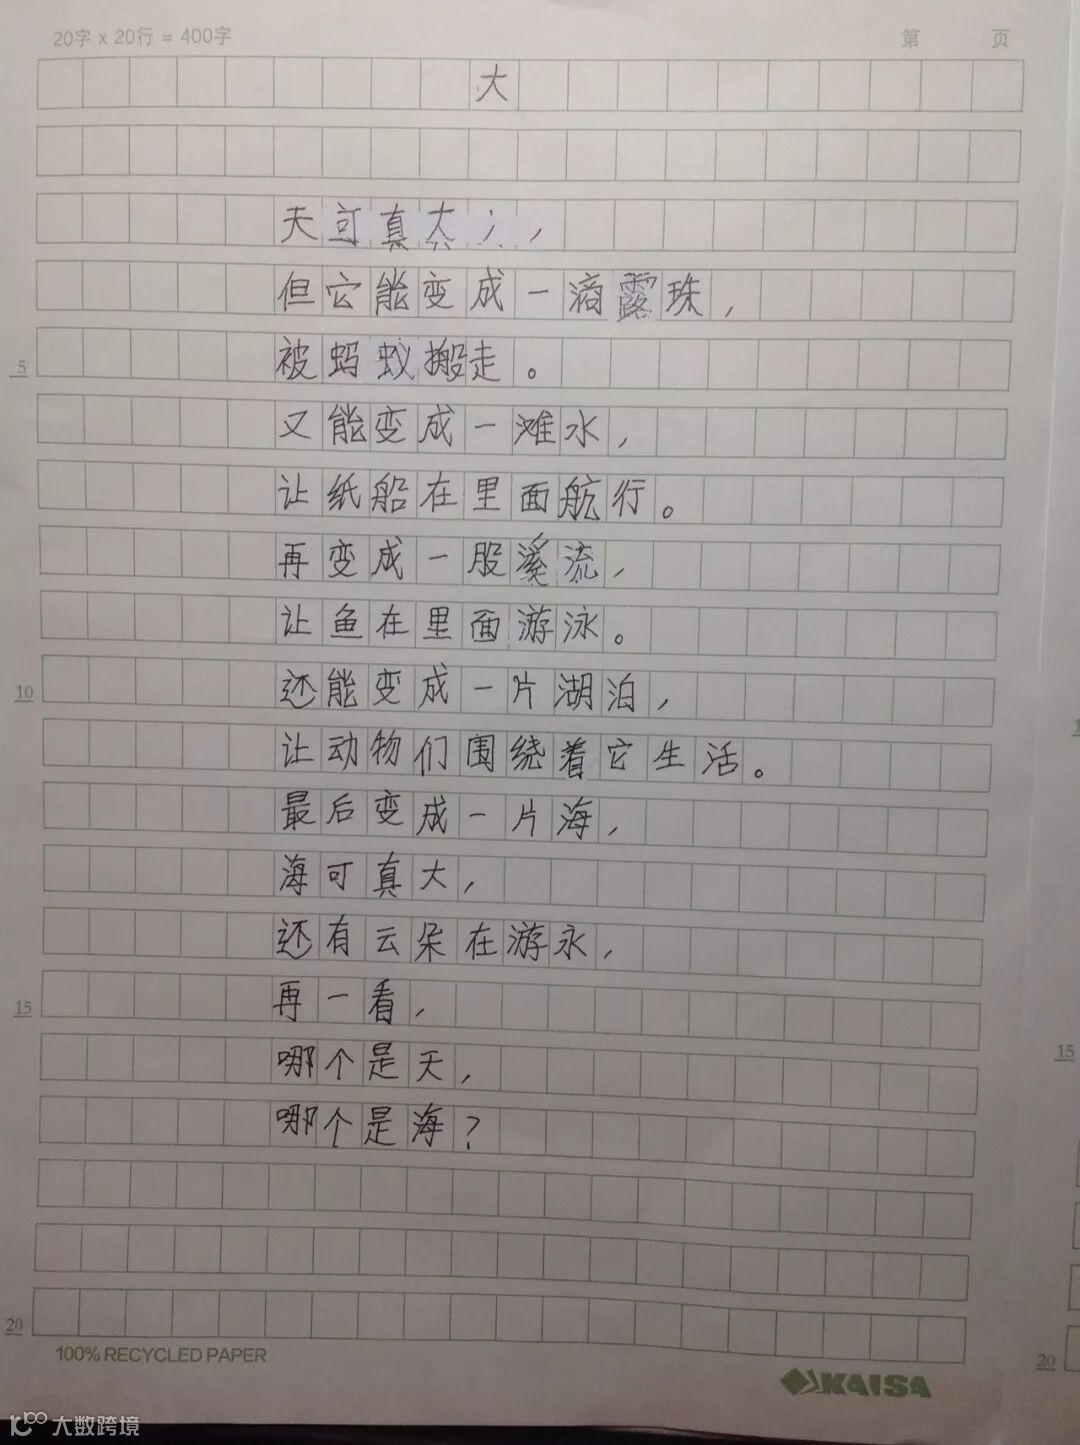 20字 x 20行 = 400字
第 页
大
天可真大,
但它能变成一滴露珠,
被蚂蚁搬走。
5
又能变成一滩水,
让纸船在里面航行。
再变成一股溪流,
让鱼在里面游泳。
还能变成一片湖泊,
10
让动物们围绕着它生活。
最后变成一片海,
海可真大,
还有云朵在游永,
再一看,
15
哪个是天,
15
哪个是海?
20
20
100% RECYCLED PAPER
KAISA
大数跨境